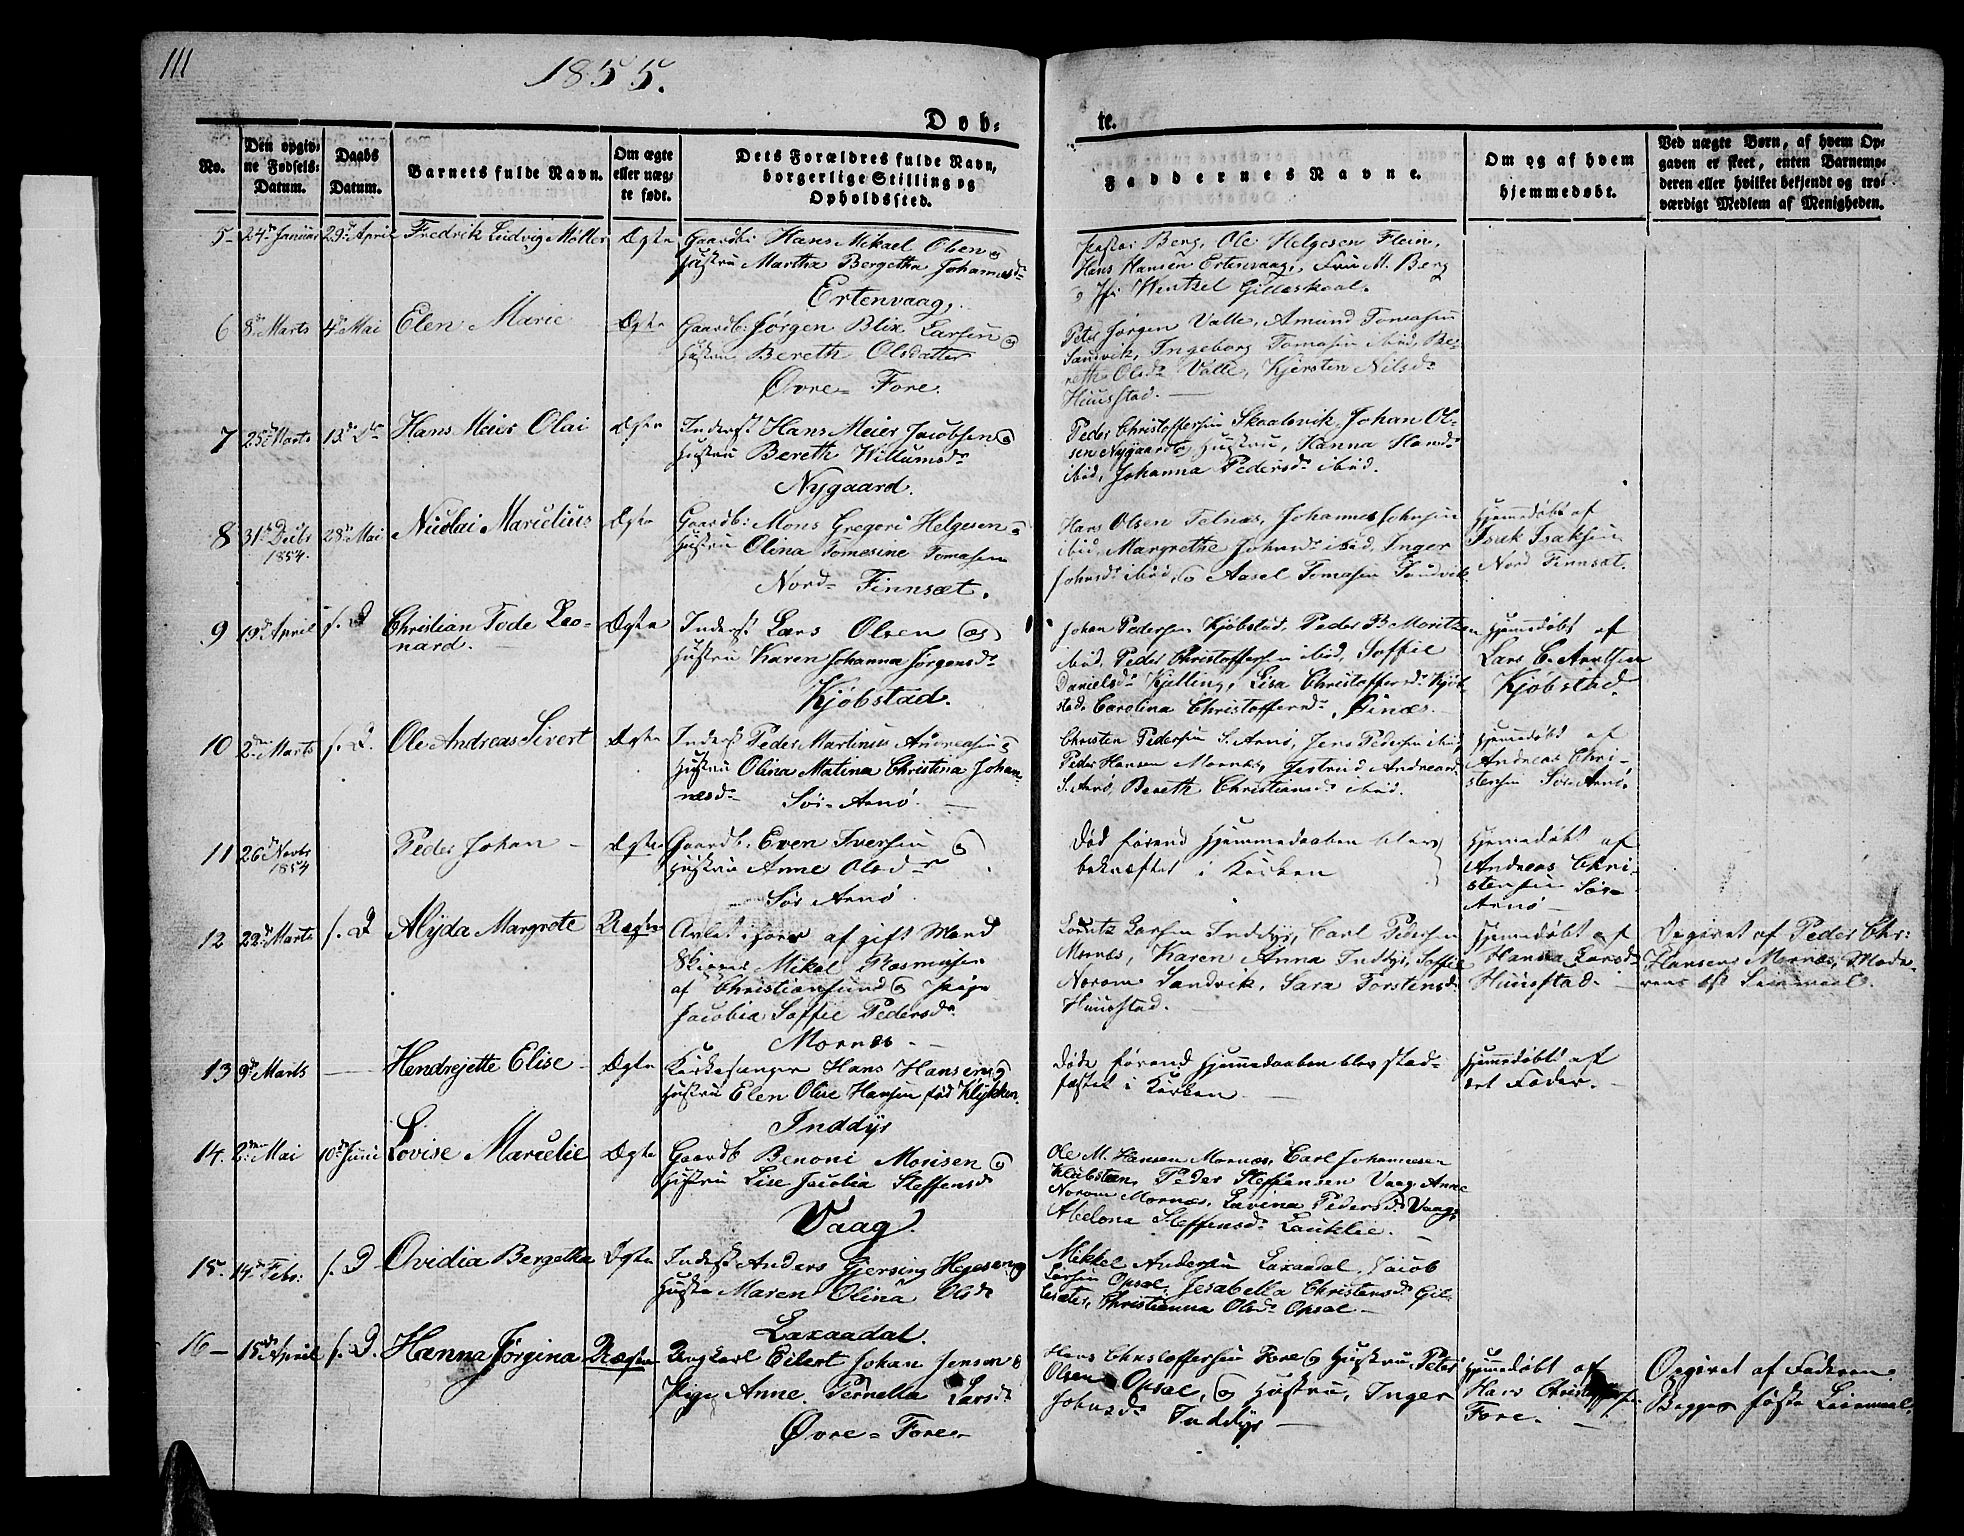 111
1855.
Døb-
te.
No.
Den opgiv-
ne Fødsels-
Datum.
Daabs
Datum.
Barnets fulde Navn.
Om ægte
eller uæg-
te født.
Dets Forældres fulde Navn,
borgerlige Stilling og
Opholdssted.
Faddernes Navne.
Om og af hvem
hjemmedøbt.
Ved uægte Børn, af hvem Op-
gaven er skeet, enten Barnemo-
deren eller hvilket bekjendt og tro-
værdigt Medlem af Menigheden.
5 24de Januar 29de April Fredrik Ludvig Møller Ægte Gaardb: Hans Mikael Olsen og
Hustru Martha Bergetha Johannesdr
Ertenvaag.
Pastor Berg, Ole Helgesen Flein,
Hans Hansen Ertenvaag, Fru M. Berg
og Jfr Wentzel Gilleskaal.
6 8de Marts 4de Mai Elen Marie Ægte Gaardb: Jørgen Blix Larsen og
Hustru Bereth Olsdatter
Øvre-Fore.
Peter Jørgen Valle, Amund Tomasen
Sandvik, Ingeborg Tomasen ibid, Be-
reth Olsdr Valle, Kjersten Nilsdr
Huusstad.
7 25de Marts 13de Do Hans Meier Olai Ægte Inderst Hans Meier Jacobsen og
Hustru Bereth Willumsdr
Nygaard.
Peder Christoffersen Skaalsvik, Johan Ol-
sen Nygaard og Hustru, Hanna Hansdr
ibid, Johanna Pedersdr ibid.
8 31te Decbr 28de Mai Nicolai Marcelius Ægte Gaardb: Mons Gregori Helgesen og
1854.
Hustru Olina Tomesine Tomasen
Nord-Finnsæt.
Hans Olsen Felnæs, Johannes Johnsen
ibid, Margrethe Johnsdr ibid, Inger
Johnsdr ibid, og Aasel Tomasen Sandvik
Hjemedøbt af
Isak Isaksen
Nord Finnsæt.
9 19de April s. D Christian Tode Leo-
nard.
Ægte Inderst Lars Olsen og
Hustru Karen Johanna Jørgensdr
Kjøbstad.
Johan Pedersen Kjøbstad, Peder B Moritzen
ibid, Peder Christoffersen ibid, Soffie
Danielsdr Kjelling, Lisa Christoffersdr Kjøb-
stad, Carolina Christoffersdr
Hjemedøbt af
Lars C. Arntsen
Kjøbstad.
10 2den Marts s. D. Ole Andreas Sivert Ægte Inderst Peder Martinus Andreasen og
Hustru Olina Matina Christina Johan-
nesdr
Sør-Arnø.
Christen Pedersen S. Arnø, Jens Pedersen ibid,
Peder Hansen Mornæs, Jertrud Andreasdr
S. Arnø, Bereth Christiansdr ibid.
Hjemedøbt af
Andreas Chri-
stensen Sør-Arnø.
11 26de Novbr Peder Johan Ægte Gaardb. Even Iversen og
1854
Hustru Anne Olsdr
Sør Arnø
Død førend Hjemmedaaben blev
bekræftet i Kirken
Hjemedøbt af
Andreas Chri-
stensen Sør-
Arnø
12 22de Marts s. D Alyda Margrete Uægte Avlet i Hoer af gift Mand
Mikal Rasmusen
af Christiansund og Pige
Jacobia Soffie Pedersdr
Mornæs
Lorntz Larsen Inddyr, Carl Pedersen
Mornæs, Karen Anna Inddyr, Soffie
Norom Sandvik, Sara Torstensdr
Huusstad.
Hjemedøbt af
Hanna Larsdr
Huusstad.
Opgivet af Peder Chr:
Hansen Mornæs, Mode-
rens 1st Leiermaal.
13 9de Marts Hendrejette Elise Ægte Kirkesanger Hans Hansen og
Hustru Elen Oline Hansen, fød Klykken
Inddyr
Døde førend Hjemmedaaben blev stad-
fæstet i Kirken
Hjemedøbt af
det Fader.
14. 2den Mai 10de Juni Lovise Marcelie Ægte Gaardb Benoni Morisen og
Hustru Lise Jacobia Steffensdr
Vaag.
Ole M. Hansen Mornæs, Carl Johannesen
Klubsteen, Peder Steffensen Vaag, Anne
Norom Mornæs, Lavina Pedersdr Vaag,
Abelona Steffensdr Lauklie.
15. 14de Febr: s. D Ovidia Bergetha Ægte Inderst Anders Gjersing Hegesen og
Hustru Maren Olina Olsdr
Laxaadal.
Mikkel Andersen Laxaadal, Jacob
Larsen Opsal, Jesabella Christensdr Gil-
lesæter, Christianna Olsdr Opsal
16 15de April s. D. Hanna Jørgina Uægte Ungkarl Eilert Johan Jensen og
Pige Anne Pernella Larsdr
Øvre-Fore
Hans Christoffersen Fore og Hustru, Peter
Olsen Opsal, og Hustru, Inger
Johnsdr Inddyr
Hjemedøbt af
Hans Christoffersen
Fore.
Opgivet af Faderen
Begges første Leiermaal.